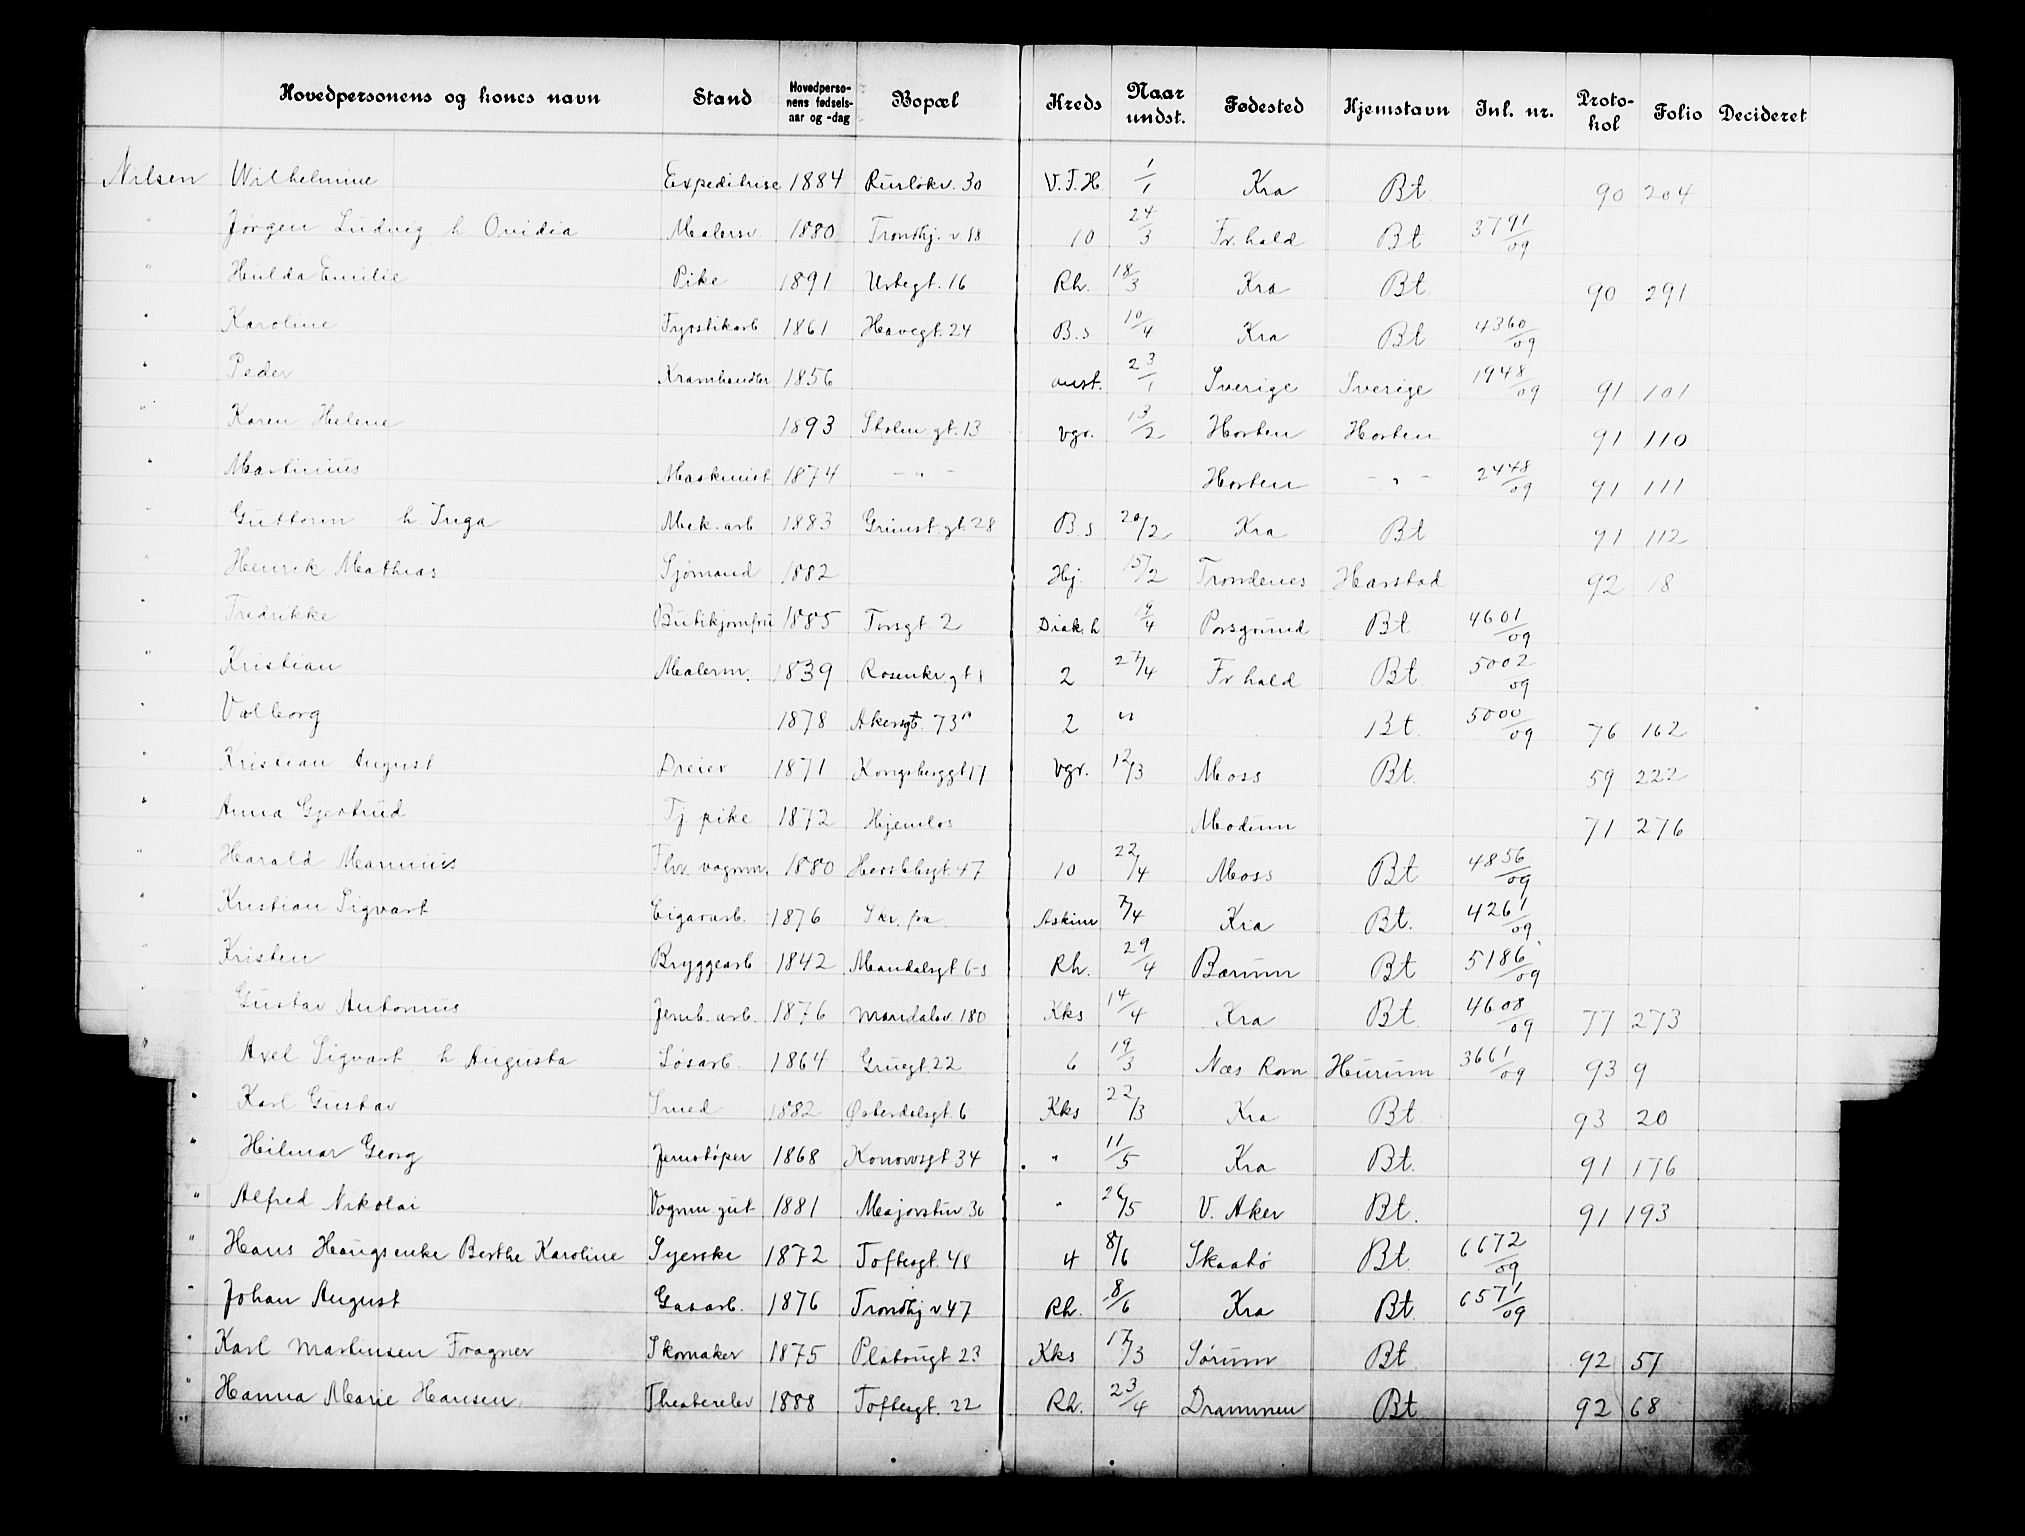 Hovedpersonens og kones navn Stand Hovedperso-nens fødsels-aar og -dag Bopæl Kreds Naar undst. Fødested Hjemstavn Inl. nr. Proto-kol Folio Decideret
Nilsen Wilhelmine Expeditrise 1884 Rusløkv. 30 V.F.H 1/1 Kra Bt 90 204
" Jørgen Ludvig h Ovidia Malersv. 1880 Trondhj. v. 98 10 24/3 Fr.hald Bt 3791/09
" Hulda Emilie Pike 1891 Urtegt. 16 Rh. 18/3 Kra Bt 90 291
" Karoline Fyrstikarb 1861 Havegt. 24 B.s 10/4 Kra Bt 4360/09
" Peder Kramhandler 1856 anst. 23/1 Sverige Sverige 1948/09 91 101
" Karen Helene 1893 Stolm gt. 13 vgr. 13/2 Horten Horten 91 110
" Martinius Maskinist 1874 - " - Horten - " - 2448/09 91 111
" Guttorm h Inga Mek. arb 1883 Grimst. gt. 28 B.s 20/2 Kra Bt 91 112
" Henrik Mathias Sjømand 1882 Hj. 15/2 Trondenes Harstad 92 18
" Fredrikke Butikjomfru 1885 Torsgt 2 Diak. h 19/4 Porsgrund Bt 4601/09
" Kristian Malerm. 1839 Rosenkr gt 8 2 27/4 Fr hald Bt 5002/09
" Valborg 1878 Akersgt. 73 2 " Bt. 5000/09 76 162
" Kristian August Dreier 1871 Kongsberggt 17 vgr. 12/3 Moss Bt. 59 222
" Anna Gjertrud Tj. pike 1872 Hjemløs Modum 71 276
" Harald Marinius Thv. vognm. 1880 Herslebsgt. 47 10 22/4 Moss Bt 4856/09
" Kristian Sigvart Cigararb. 1876 Skr. fra Askim 7/4 Kria Bt. 4261/09
" Kristen Bryggearb 1842 Mandalsgt 6-s Rh. 29/4 Bærum Bt 5186/09
" Gustav Antonius Jernb. arb. 1876 Maridalsv 180 Kks 14/4 Kra Bt 4608/09 77 273
" Axel Sigvart h. Augusta Løsarb. 1864 Gruegt. 22 6 19/3 Næs Rom Hurum 3661/09 93 9
" Karl Gustav Smed 1882 Østerdalsgt. 6 Kks 22/3 Kra Bt 93 20
" Hilmar Georg Jernstøper 1868 Konowsgt 34 " 11/5 Kra Bt. 91 176
" Alfred Nikolai Vognm gut 1881 Majorstuv 36 " 26/5 V. Aker Bt. 91 193
" Hans Haugsenke Berthe Karoline Syerske 1872 Toftesgt. 48 4 8/6 Skaatø Bt. 6672/09
" Johan August Gasarb. 1876 Trondhj v. 47 Rh. 8/6 Kra Bt. 6571/09
" Karl Martinsen Fragner Skomaker 1875 Platougt 23 Kks 17/3 Sørum Bt 92 51
" Hanna Marie Hansen Theaterelev 1888 Toftesgt. 22 Rh. 23/4 Drammen Bt 92 68
"